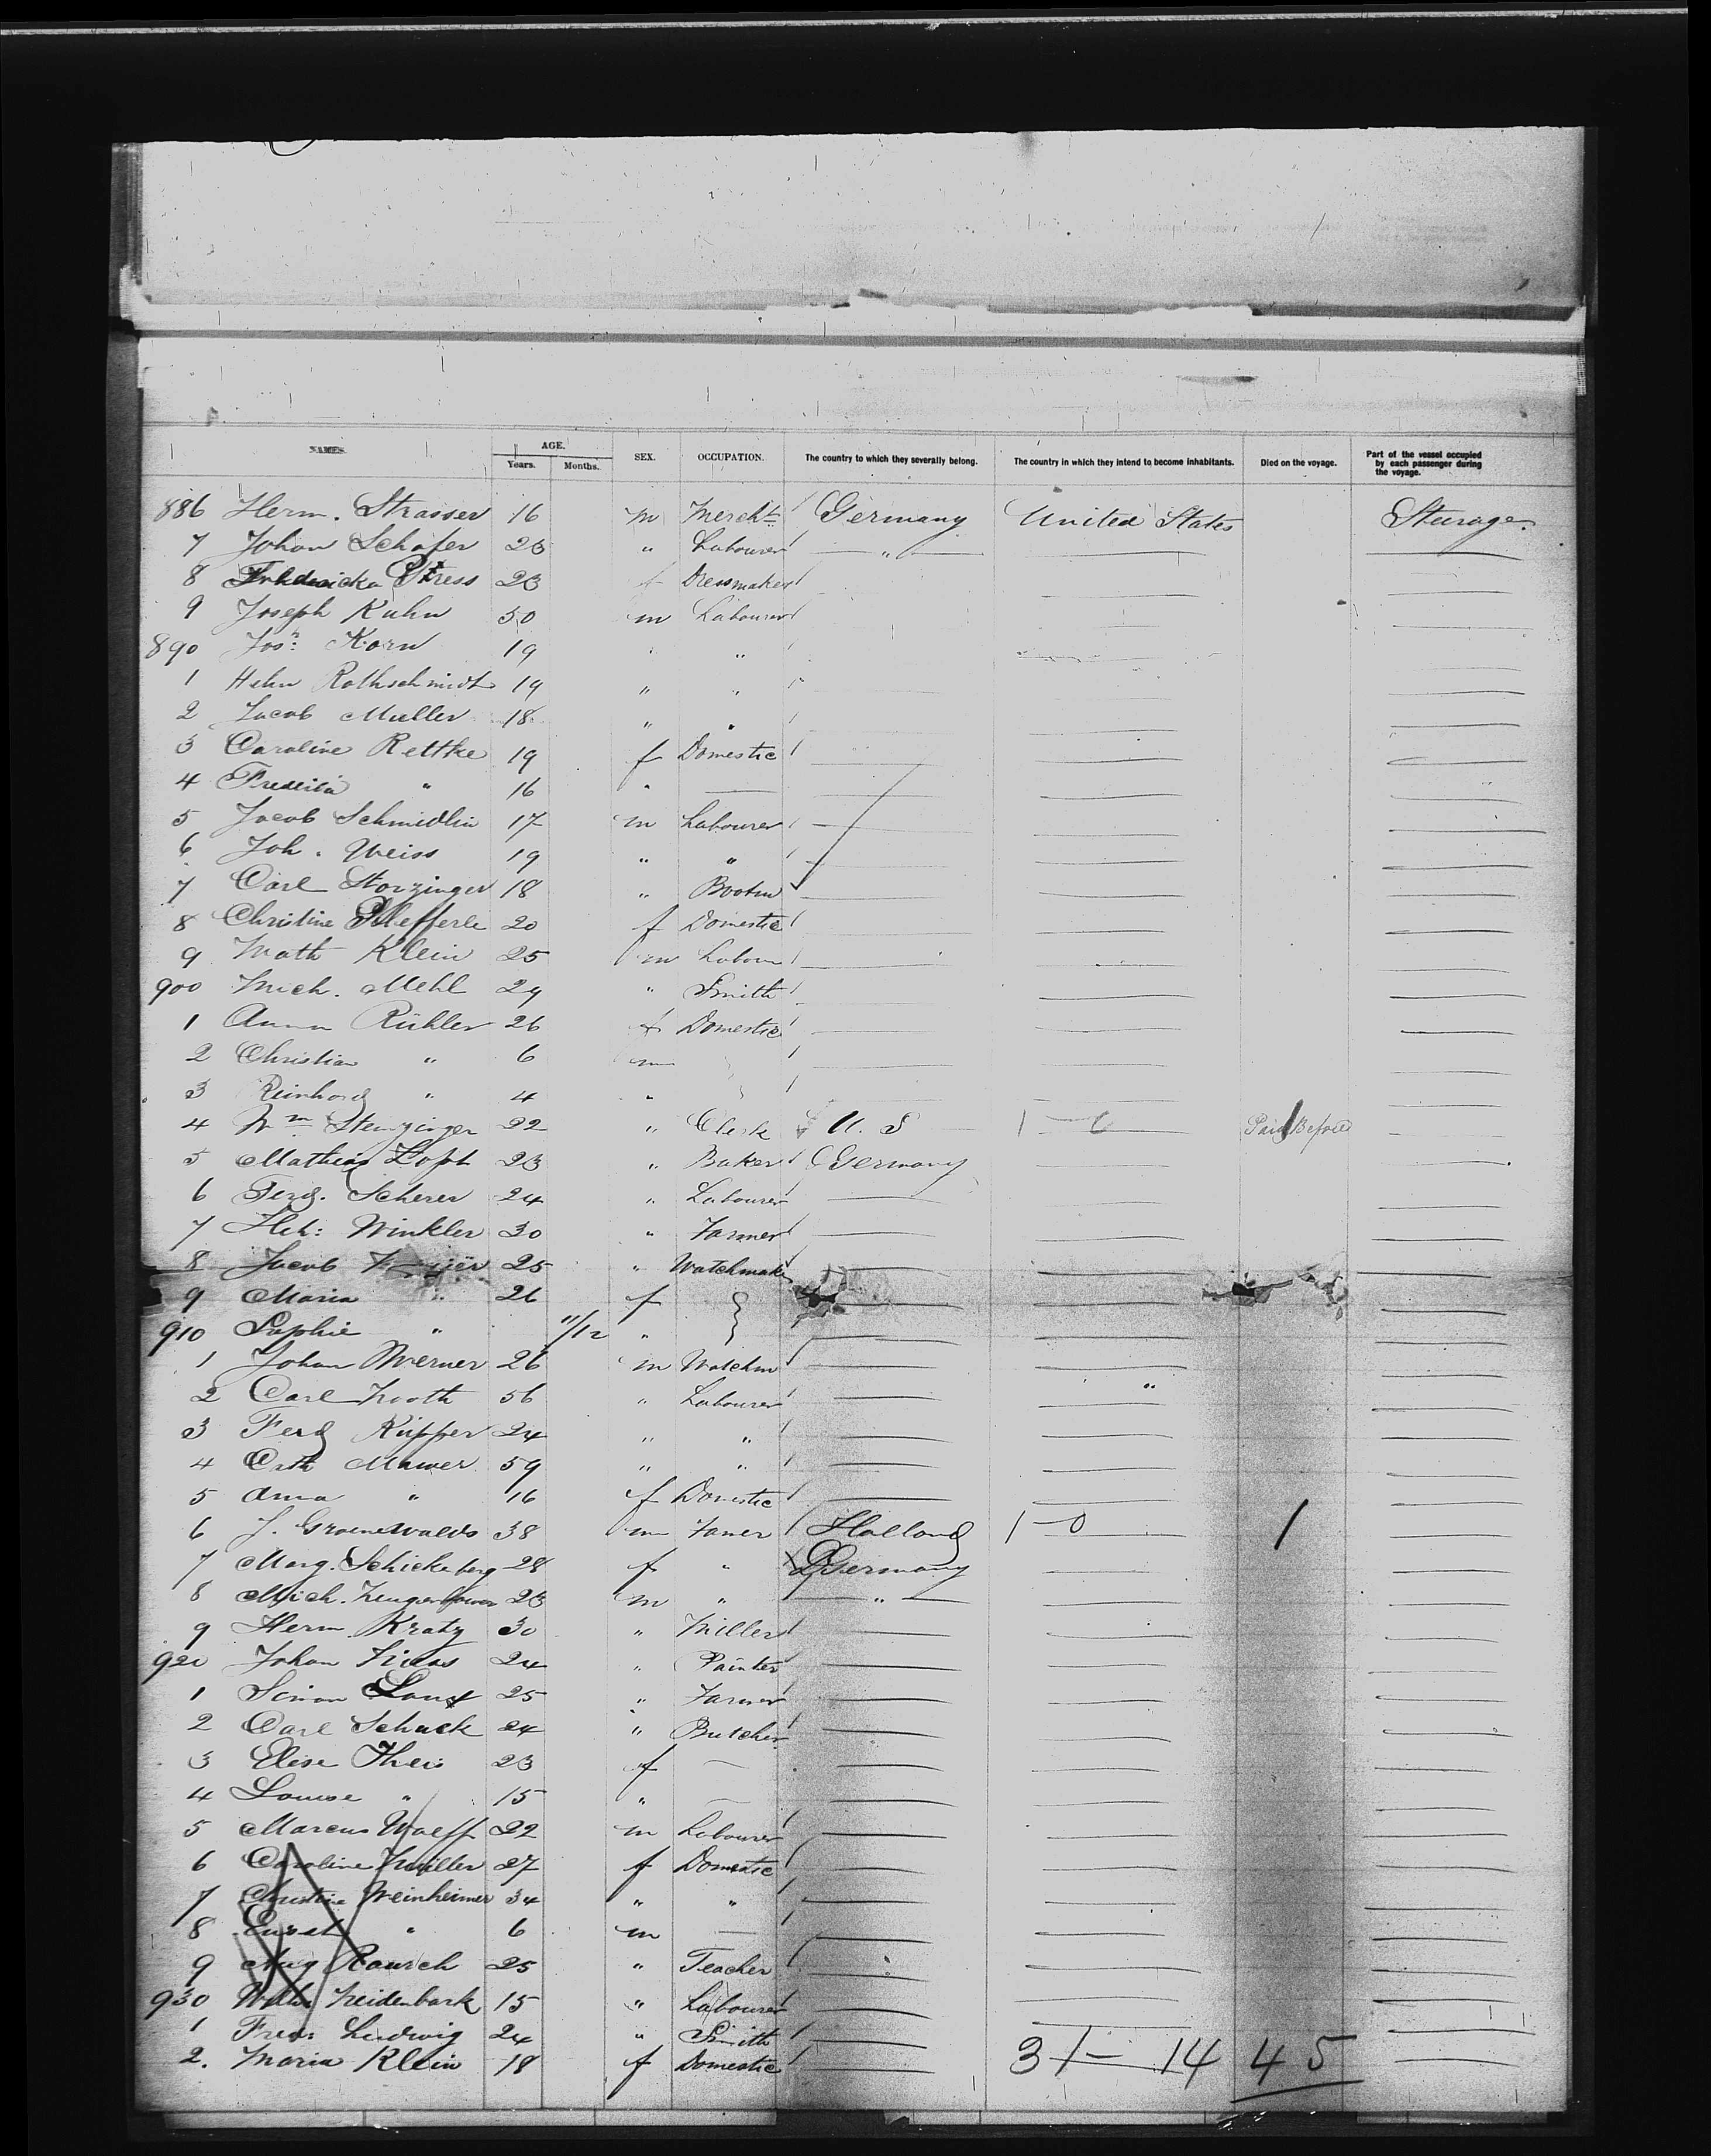 NAMES. AGE. Years. Months. SEX. OCCUPATION. The country to which they severally belong. The country in which they intend to become inhabitants. Died on the voyage. Part of the vessel occupied by each passenger during the voyage.
886 Herm. Strasser 16 m Mercht Germany United States Steerage
7 Johan Schafer 23 " Labourer "
8 Stress 23 f Dressmaker
9 Joseph Kuhn 50 m Labourer
890 Jos: Korn 19 " "
1 Hehn Rothschmidt 19 " "
2 Jacob Muller 18 " "
3 Caroline Rettke 19 f Domestic
4 " 16 "
5 Jacob Schmidlin 17 m Labourer
6 Joh. Weiss 19 " "
7 Carl Storzinger 18 "
8 Christine 20 f Domestic
9 Math Klein 25 m Labour
900 Mich. Mehl 29 " Smith
1 Anna Rühler 26 f Domestic
2 Christian " 6 m
3 Reinhard " 4 "
4 Wm Stenzinger 22 " Clerk U. S 1 - 0 Paid Before
5 Mathias 23 " Baker Germany
6 Ferd. Scherer 24 " Labourer
7 Hch: Winkler 30 " Farmer
8 Jacob 25 " Watchmak
9 Maria " 26 f
910 Sophie " 11/12 "
1 Johan Werner 26 m Watchm
2 Carl 56 " Labourer
3 Ferd Küpper 24 " "
4 Cath 59 " "
5 Anna " 16 f Domestic
6 J. Groenewalds 38 m Famer Holland 1 - 0 1
7 Marg. Schickeberg 28 f " Germany
8 Mich. 23 m " "
9 Herm Kratz 30 " Miller
920 Johan 24 " Painter
1 Simon 25 " Farmer
2 Carl Schuck 24 " Butcher
3 Elise Theis 23 f
4 Louise " 15 "
5 Marcus Wolff 22 m Labourer
6 Caroline Muller 27 f Domestic
7 Christine Weinheimer 34 " "
8 " 6 m
9 Aug Rausch 25 " Teacher
930 Heidenbark 15 " Labourer
1 Fred: Ludwig 24 " Smith
2. Maria Klein 18 f Domestic
31 - 14 45